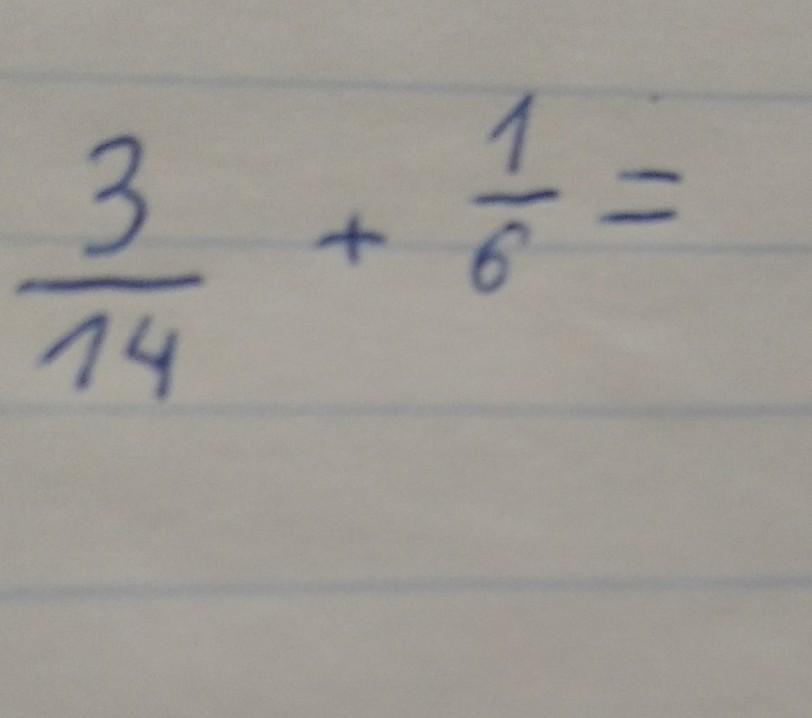 3/14 + 1/6 =